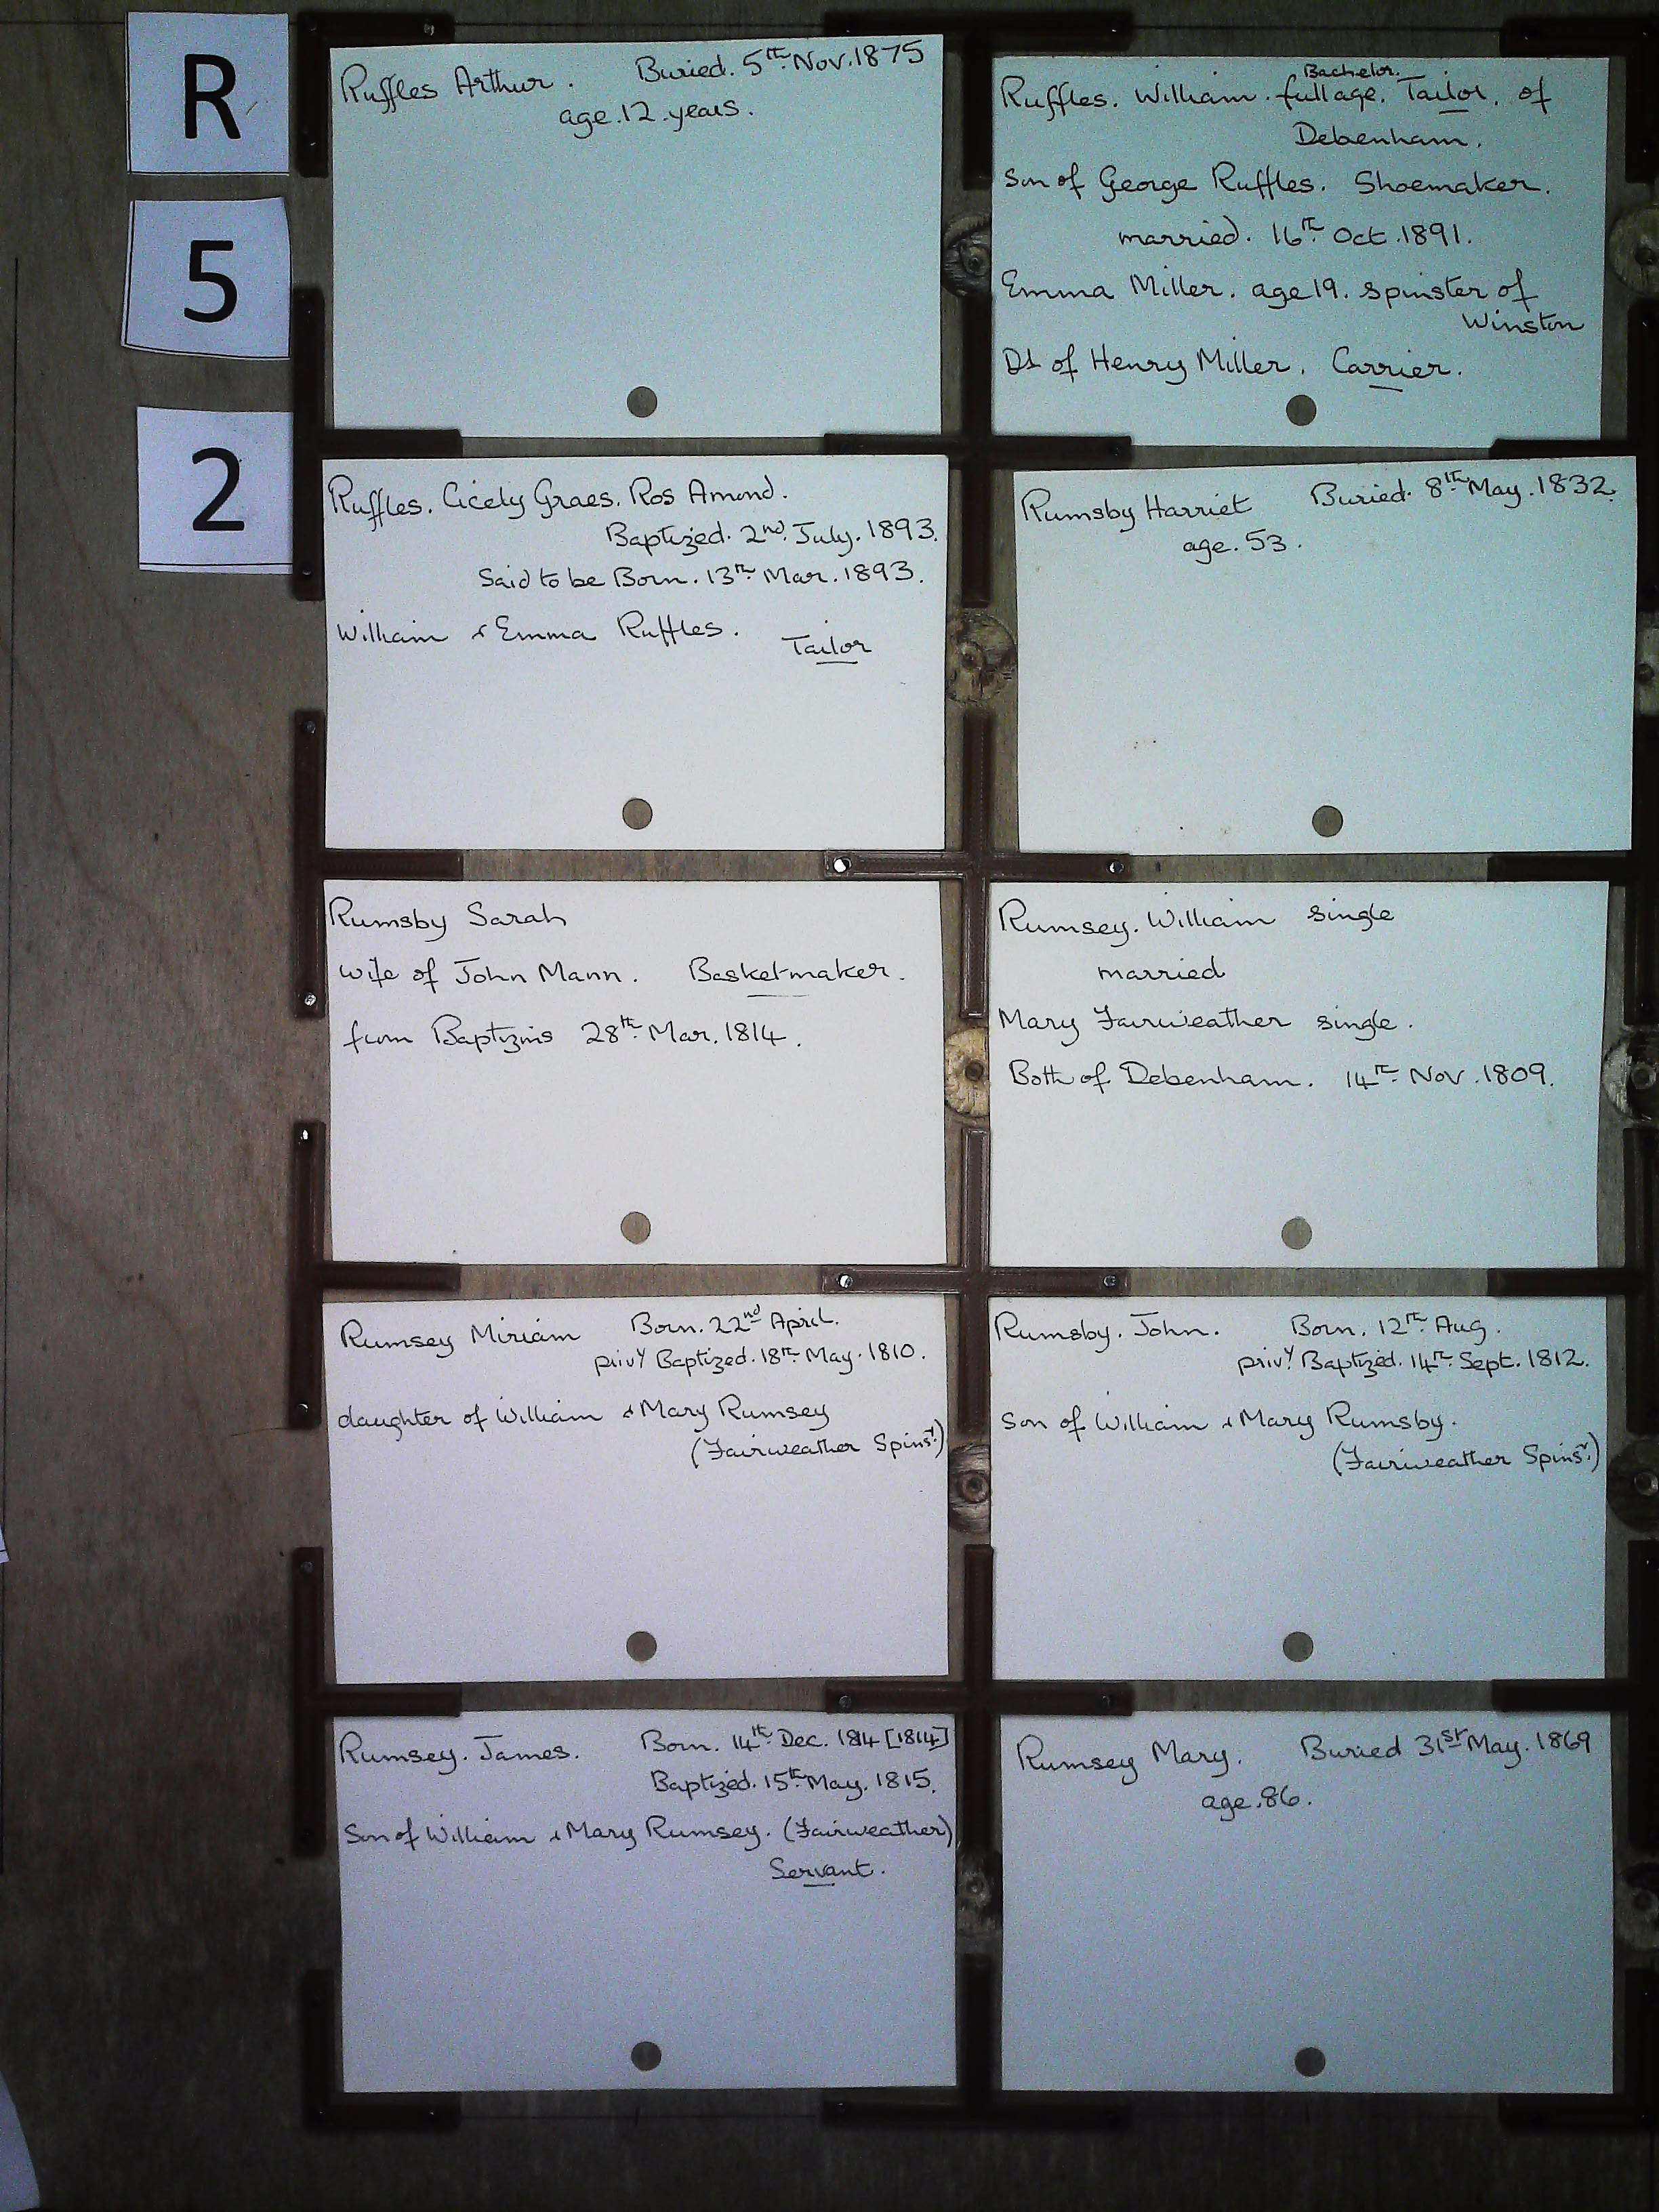 R
5
2
Ruffles Arthur. Buried. 5th Nov. 1875
age. 12 years.
Bachelor.
Ruffles. William. full age. Tailor. of
Debenham.
Son of George Ruffles. Shoemaker.
married. 16th Oct. 1891.
Emma Miller. age 19. spinster of
Winston
Dt of Henry Miller. Carrier.
Ruffles. Cicely Graes. Ros Amond.
Baptized. 2nd July. 1893.
Said to be Born. 13th Mar. 1893.
William & Emma Ruffles.
Tailor
Rumsby Harriet Buried. 8th May. 1832.
age. 53.
Rumsby Sarah
wife of John Mann. Basketmaker.
from Baptizms 28th Mar. 1814.
Rumsey. William single
married
Mary Fairweather single.
Both of Debenham. 14th Nov. 1809.
Rumsey Miriam Born. 22nd April.
privy Baptized. 18th May. 1810.
daughter of William & Mary Rumsey
(Fairweather Spinst.)
Rumsby. John. Born. 12th Aug.
privy Baptized. 14th Sept. 1812.
Son of William & Mary Rumsby.
(Fairweather Spinsr.)
Rumsey. James. Born. 14th Dec. 1814 [1814]
Baptized. 15th May. 1815.
Son of William & Mary Rumsey. (Fairweather)
Servant.
Rumsey Mary. Buried 31st May. 1869
age. 86.